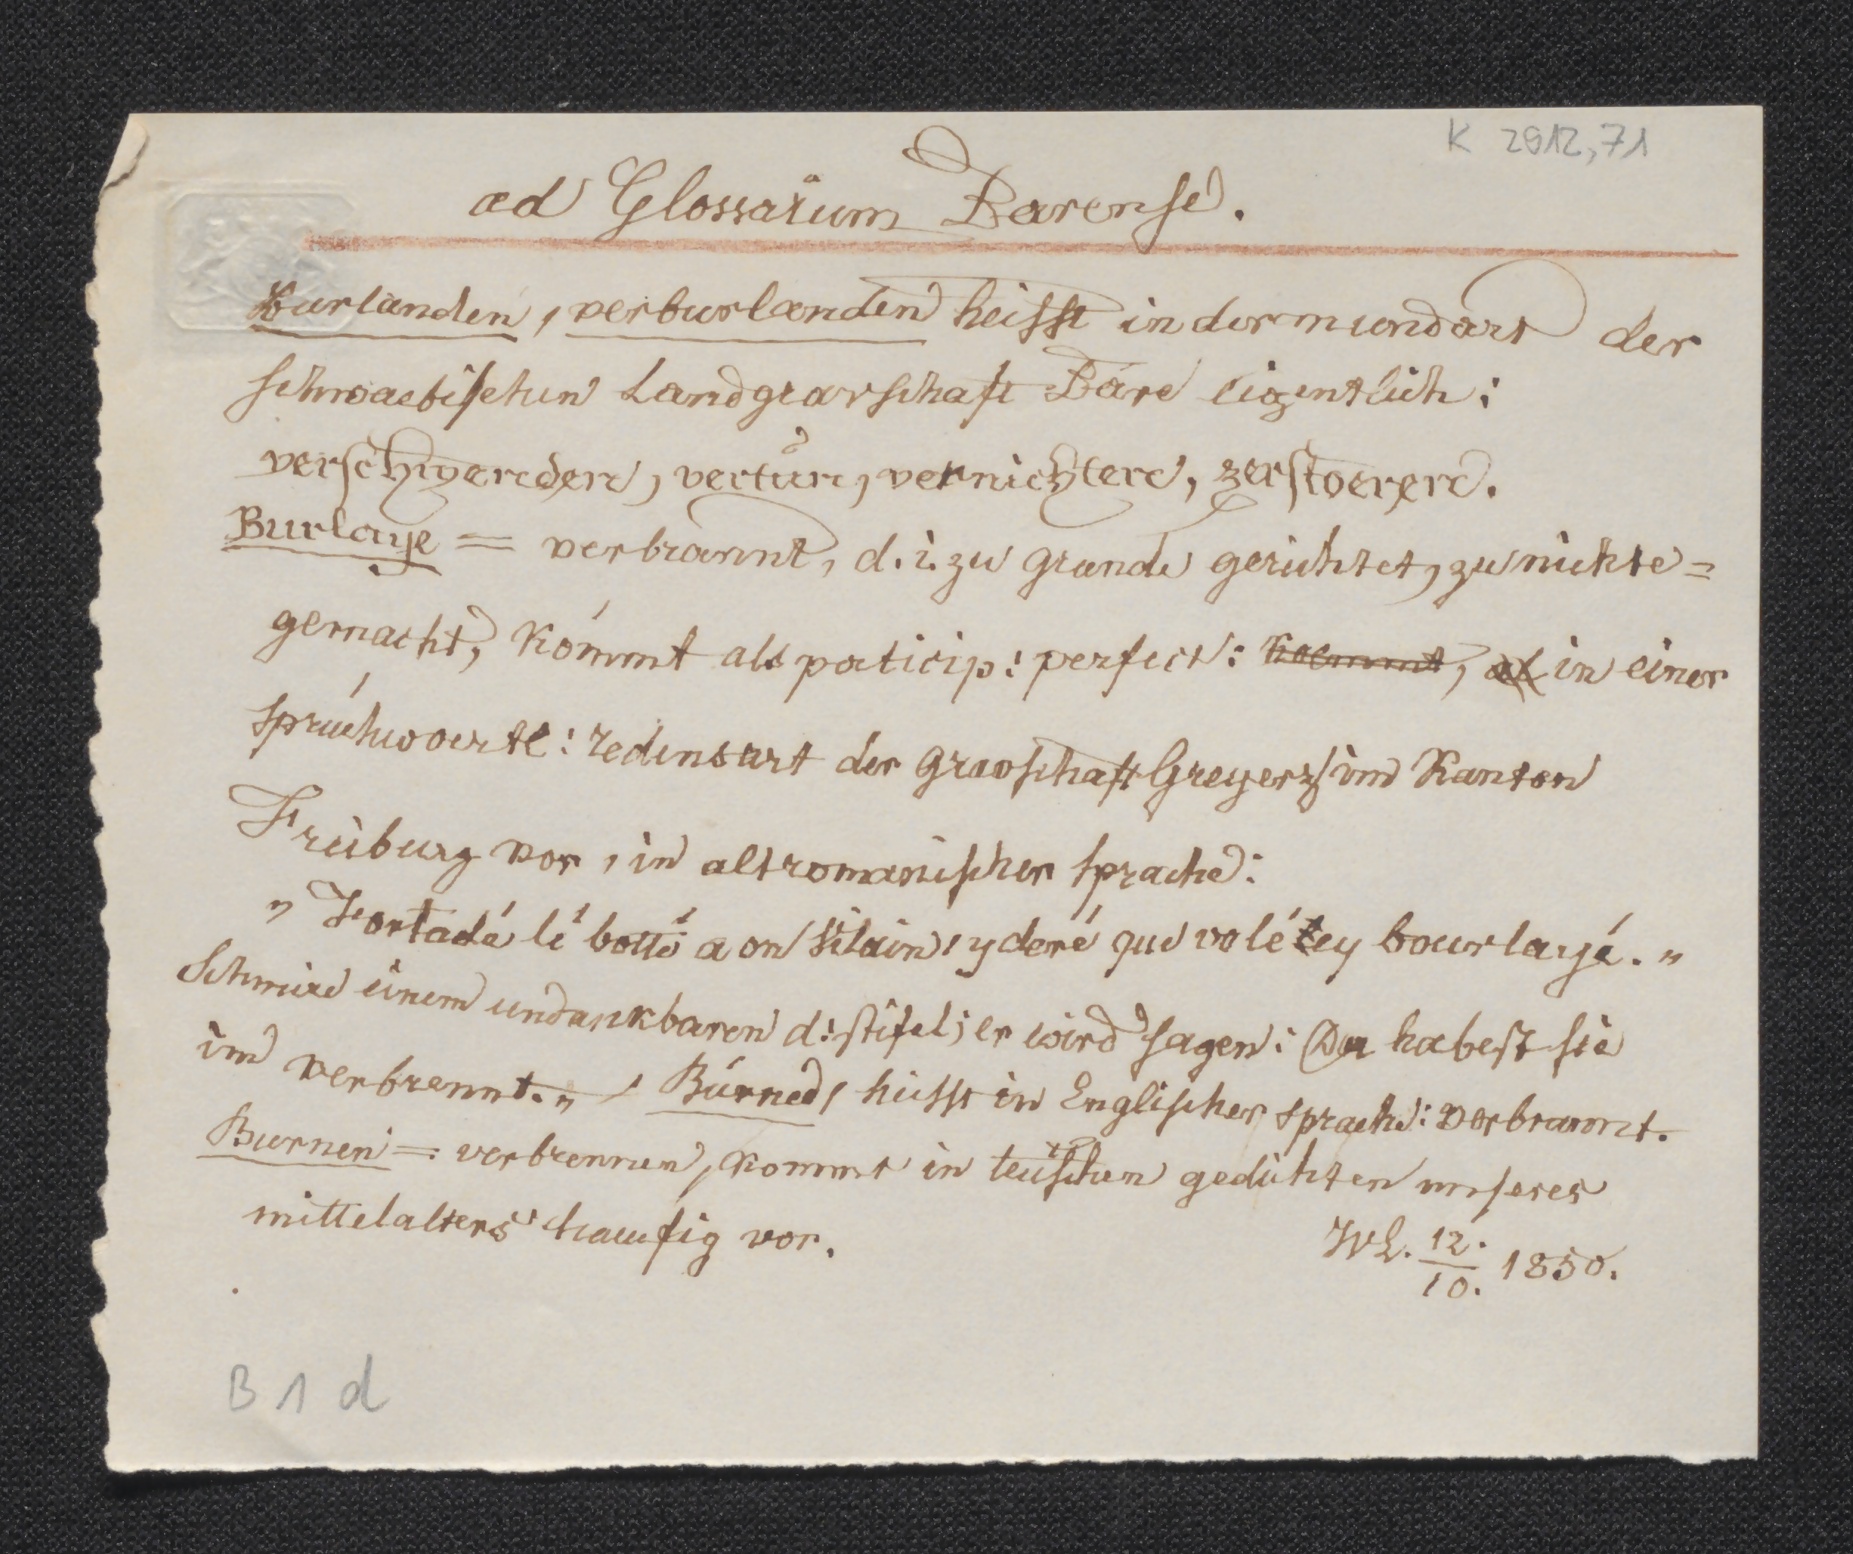 K 2912,71
ad Glossarium Barense.
Burlanden, verburlanden heisst in der mundart der
schwaebischen Landgravschaft Báre eigentlich:
verschwenden, vertun, vernichten, zerstoeren.
Burlaye = verbrannt, d. i. zu grunde gerichtet, zu nichte=
gemacht, kómmt als particip: perfect: koemmt, al in einer
sprüchwoertl: redensart der gravschaft Greyerz im Kanton
Freiburg vor, in altromanischer sprache:
„Fortadé lé botté a on vilain, y deré que volé ley bourlayé."
Schmire einem undankbaren d: stifel; er wird sagen: Du habest sie
im verbrennt." / Búrned, heisst in Englischer sprache: verbrannt.
Burnen = verbrennen, kommt in teütschen gedichten unseres
mittelalters haeufig vor.
WL. 12./10. 1850.
B 1 d